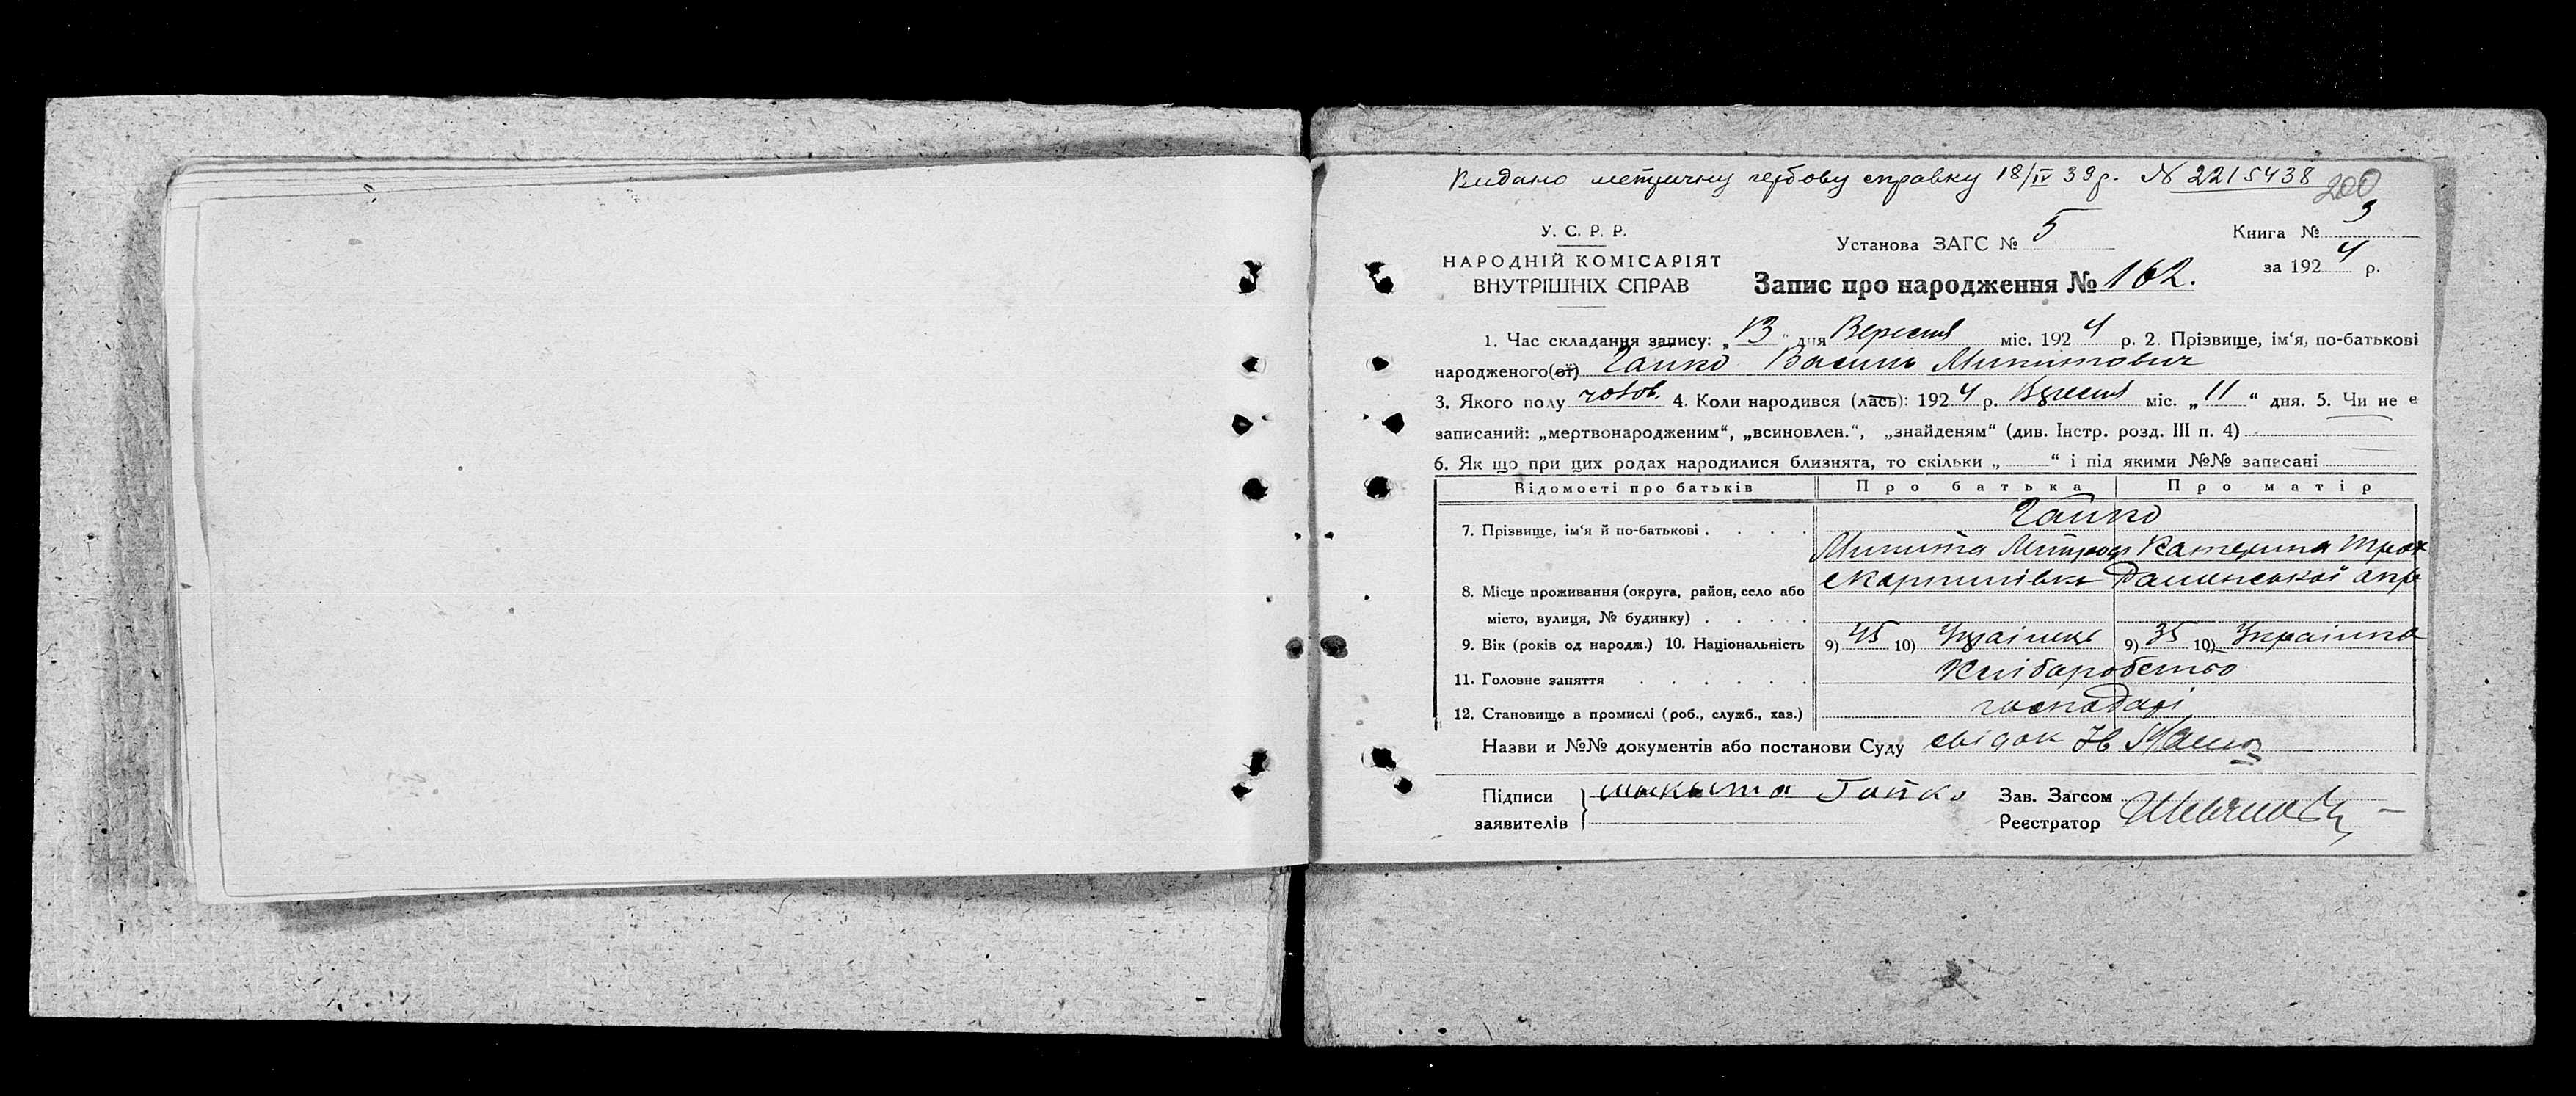 Видано метричну гербову справку 18/IV 39 р. № 2215438
200
У. С. Р. Р.
НАРОДНІЙ КОМІСАРІЯТ
ВНУТРІШНІХ СПРАВ
Установа ЗАГС № 5
Книга № 3
за 1924 р.
Запис про народження № 162.
1. Час складання запису: „13“ дня Вересня міс. 1924 р. 2. Прізвище, ім'я, по-батькові
народженого(ої) Гайко Василь Микитович
3. Якого полу чолов. 4. Коли народився (лась): 1924 р. Вересня міс. „11“ дня. 5. Чи не є
записаний: „мертвонародженим“, „всиновлен.“, „знайденям“ (див. Інстр. розд. III п. 4)
6. Як що при цих родах народилися близнята, то скільки „ “ і під якими №№ записані
Відомості про батьків Про батька Про матір
7. Прізвище, ім'я й по-батькові Гайко
Микита Митроф Катерина Троф
8. Місце проживання (округа, район, село або
місто, вулиця, № будинку)
9. Вік (років од народж.) 10. Національність 9) 45 10) Українець 9) 35 10) Українка
11. Головне заняття Хліборобство
12. Становище в промислі (роб., служб., хаз.) господарі
Назви и №№ документів або постанови Суду свідок Ів
Підписи
заявителів
Микыта Гайко
Зав. Загсом
Реєстратор